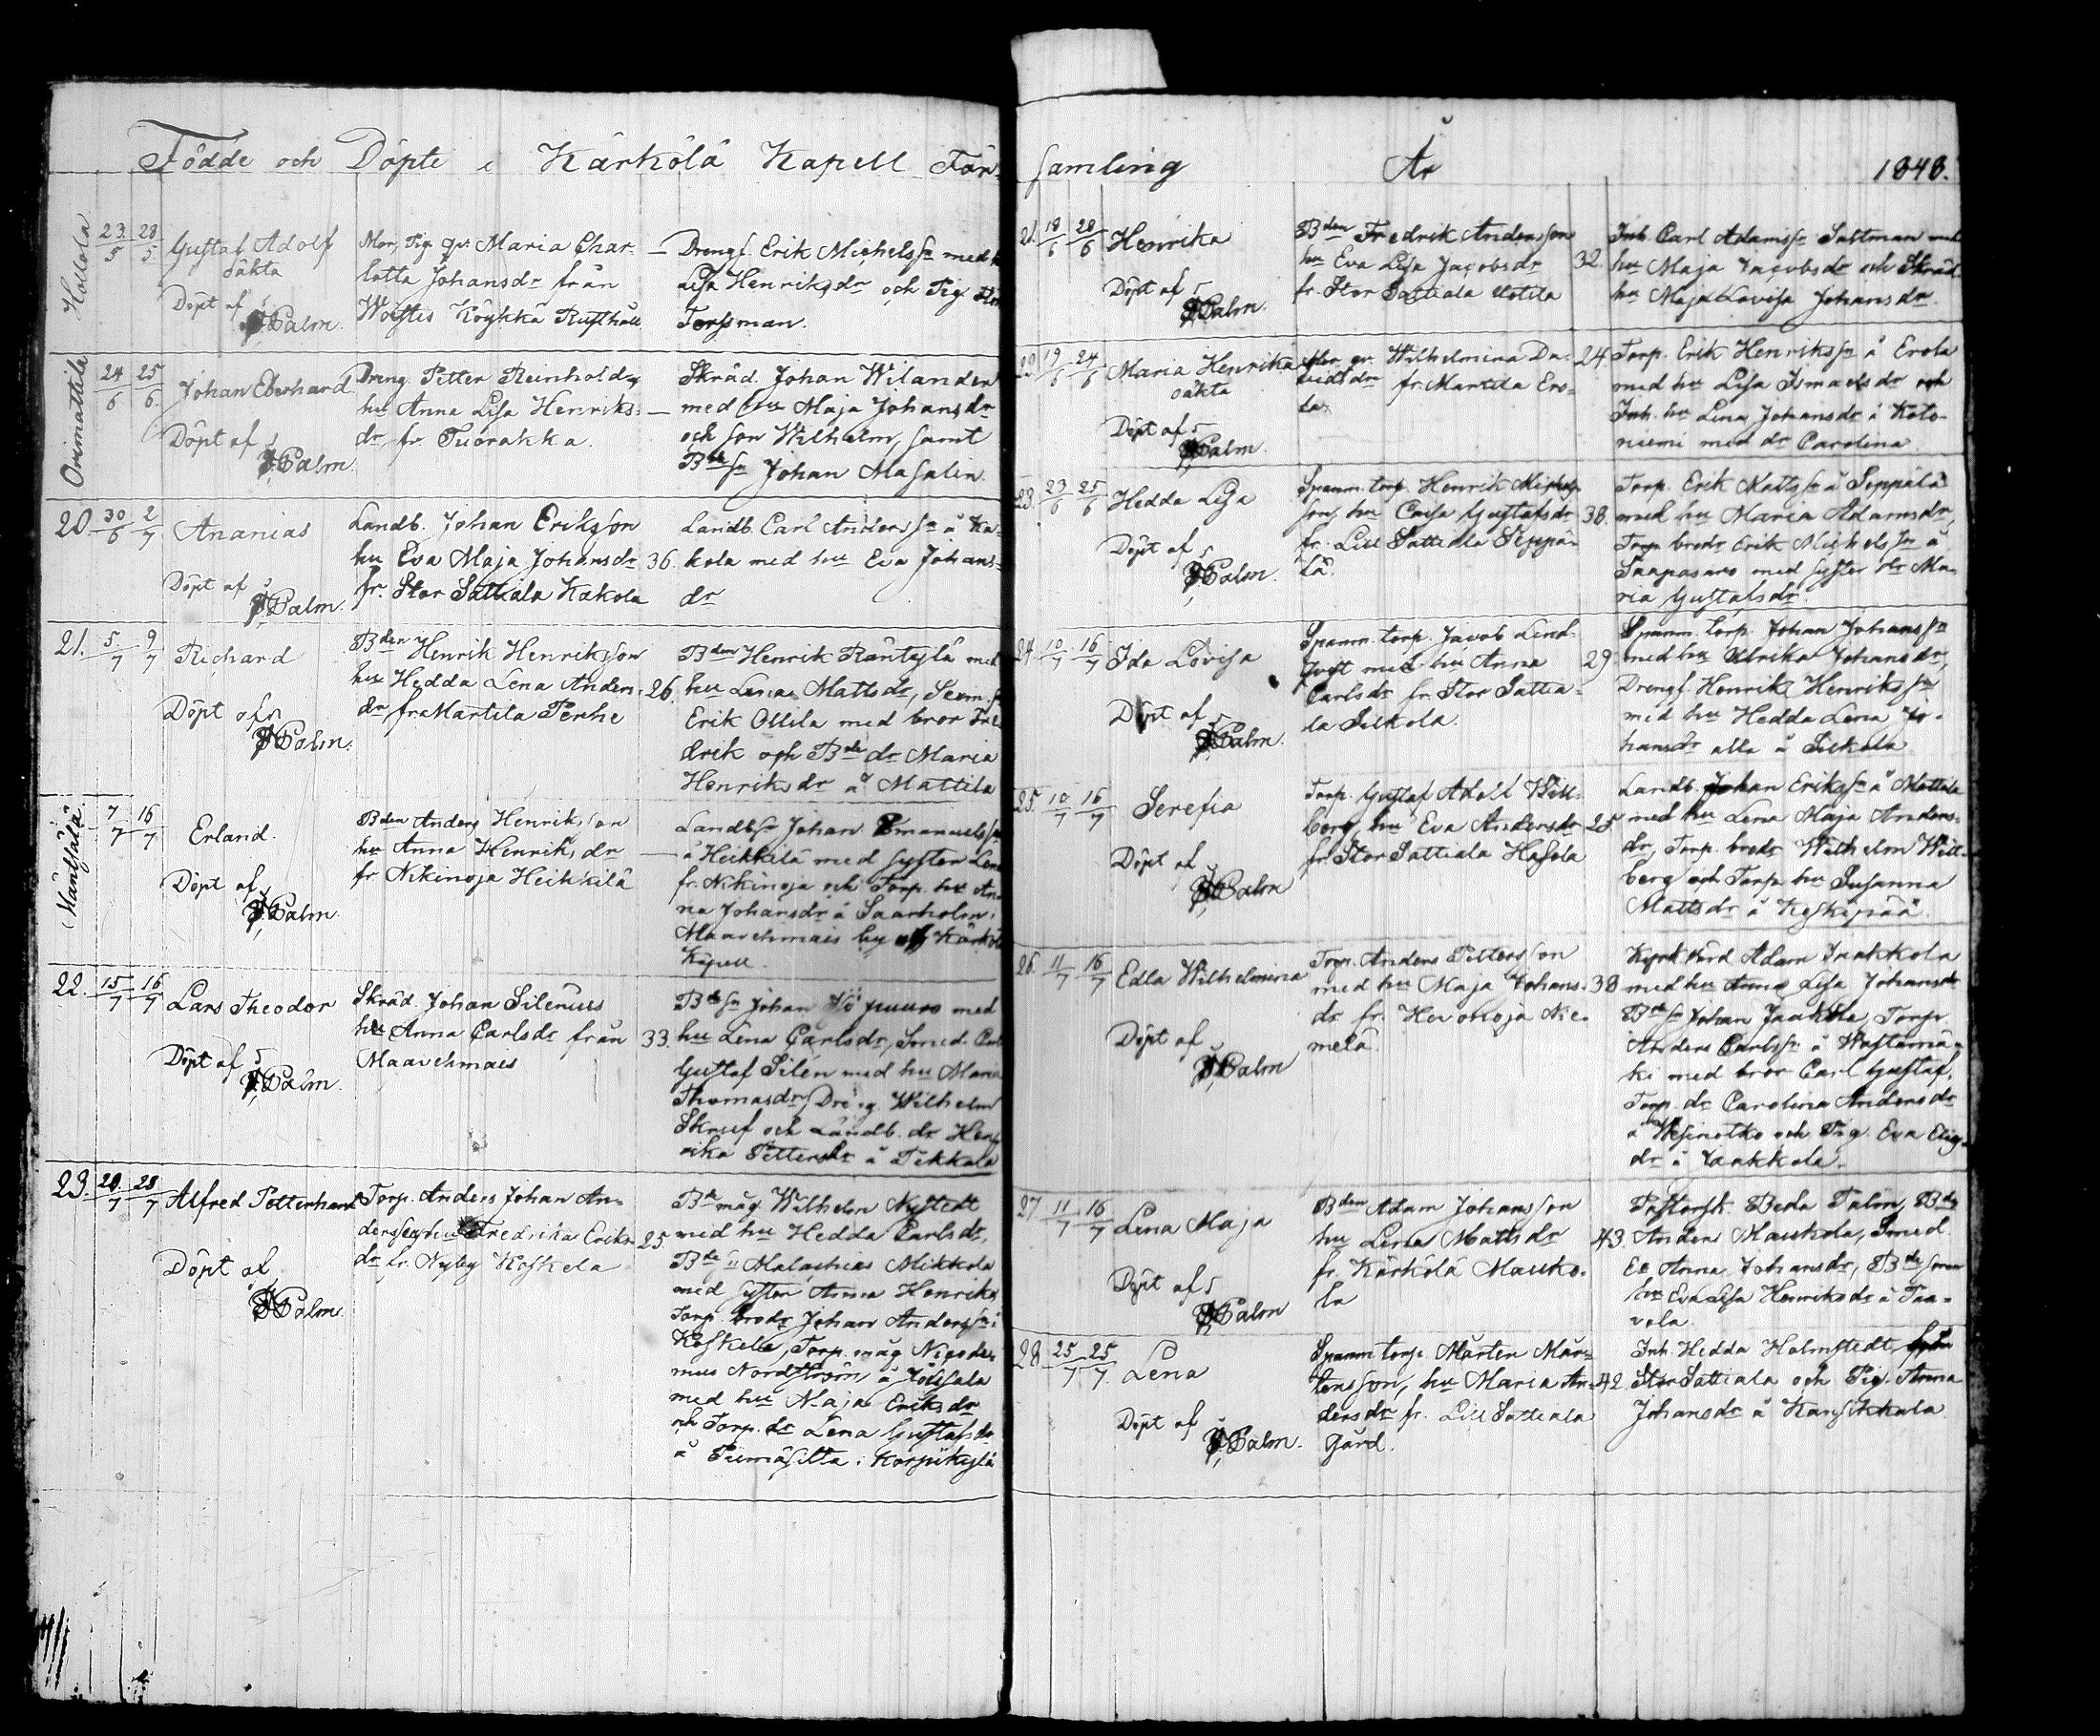 Födde och Döpte i Kärkölä Kapell För-
Hollola
23/5 28/5 Gustaf Adolf
oäkta
Döpt af
Palm.
Mor, Pig. qv. Maria Char-
lotta Johansdr från
Köykkä Rusthåll
— Drengs. Erik Michelsson med
Lisa Henriksdr och Pig.
Forssman.
Orimattila
24/6 25/6 Johan Eberhard
Döpt af
Palm
Dreng. Petter Reinholds,
hu Anna Lisa Henriks-
dr fr. Tuorakka.
— Skräd. Johan Wilander
med hu Maja Johansdr
och son Wilhelm, samt
Bde sn Johan Masalin.
20. 30/6 2/7 Ananias
Döpt af
Palm.
Landb. Johan Eriksson
hu Eva Maja Johansdr
fr. Stor Sattiala Kakola
36.
Landb. Carl Anderssn å Ka-
kola med hu Eva Johans-
dr
21. 5/7 9/7 Richard
Döpt af
Palm.
Bden Henrik Henriksson
hu Hedda Lena Anders-
dr fr Martila Perhe
26.
Bden Henrik Räntylä med
hu Lena Mattsdr,
Erik Ollila med bror Fre
drik och Bde dr Maria
Henriksdr å Mattila
Mäntsälä
7/7 16/7 Erland.
Döpt af
Palm.
Bden Anders Henriksson
hu Anna Henriksdr
fr Nikinoja Heikkilä
— Landbsn Johan Emanuelssn
å Heikkilä med syster Lena
fr. Nikinoja och Torp. hu An-
na Johansdr å Saarholm,
Maavehmais by af Kärkölä
Kapell.
22. 15/7 16/7 Lars Theodor
Döpt af
Palm.
Skräd. Johan Silenius
hu Anna Carlsdr från
Maavehmaes
33.
Bde sn Johan Yöpuuro med
hu Lena Carlsdr, Smed. Carl
Gustaf Silén med hu Maria
Thomasdr, Dreng. Wilhelm
Skruf och Landb. dr Hen-
rika Pettersdr å Pekkala
23. 20/7 23/7 Alfred Petterhand
Döpt af
Palm.
Torp. Anders Johan An-
dersson hu Fredrika Eriks-
dr fr. Nyby Koskela
25.
Bde måg Wilhelm Nystedt
med hu Hedda Carlsdr,
Bde sn Malachias Mikkola
med syster Anna Henriks
Torp. brodr Johan Anderssn i
Koskela, Torp. måg Nicode-
mus Nordström å Jössala
med hu Maja Eriksdr
och Torp. dr Lena Gustafsdr
å Piimäsilta i Korpikylä
samling År 1848.
21. 18/6 20/6 Henrika
Döpt af
Palm.
Bden Fredrik Andersson
hu Eva Lisa Jacobsdr
fr. Stor Sattiala Uotila
32.
Inh. Carl Adamssn Saltman med
hu Maja Jacobsdr och Skräd.
hu Maja Lovisa Johansdr.
22. 19/6 24/6 Maria Henrika
oäkta
Döpt af
Palm.
Mor, qv. Wilhelmina Da-
vidsdr fr. Martila Ero-
la
24.
Torp. Erik Henrikssn å Erola
med hu Lisa Ismaelsdr och
Inh. hu Lina Johansdr å Koto-
niemi med dr Carolina
23. 23/6 25/6 Hedda Lisa
Döpt af
Palm.
Spanm. torp. Henrik Michels-
son, hu Caisa Gustafsdr
fr. Lill Sattiala Seppä-
lä.
38.
Torp. Erik Mattssn å Seppälä
med hu Maria Adamsdr,
Torp. brodr Erik Michelssn å
Saaposaro med syster dr Ma-
ria Gustafsdr.
24. 10/7 16/7 Ida Lovisa
Döpt af
Palm.
Spanm. torp. Jacob Lind-
qvist med hu Anna
Carlsdr fr. Stor Sattia-
la Silkola.
29.
Spanm. torp. Johan Johanssn
med hu Ulrika Johansdr,
Drengs. Henrik Henrikssn
med hu Hedda Lena Jo-
hansdr alla å Silkola
25. 10/7 16/7 Serefia
Döpt af
Palm
Torp. Gustaf Adolf Will-
berg, hu Eva Andersdr
fr. Stor Sattiala Hasola
25.
Landb. Johan Erikssn å Mattila
med hu Lena Maja Anders-
dr, Torp. brodr Wilhelm Will-
berg och Torp. hu Susanna
Mattsdr å Keskipää
26. 11/7 16/7 Edla Wilhelmina
Döpt af
Palm
Torp. Anders Pettersson
med hu Maja Johans-
dr fr. Hevonoja Nie-
melä.
38
Kyrkvärd Adam Jaakkola
med hu Anna Lisa Johansdr
Bde sn Johan Jaakkola, Torp.
Anders Carlssn å Wastamä-
ki med bror Carl Gustaf,
Torp. dr Carolina Andersdr
å Wesinotko och Pig. Eva Elis-
dr å Jaakkola.
27. 11/7 16/7 Lena Maja
Döpt af
Palm
Bden Adam Johansson
hu Lena Mattsdr
fr. Kärkölä Mauko-
la
43.
Pastorsk. Beda Palm, Bden
Anders Maukola, Smed.
Ea Anna Johansdr, Bde sonen
hu Eva Lisa Henriksdr å Taa-
vola.
28. 25/7 25/7. Lena
Döpt af
Palm.
Spanm. torp. Mårten Mår-
tensson, hu Maria An-
dersdr fr. Lill Sattiala
Gård.
42.
Inh. Hedda Holmstedt
Stor Sattiala och Pig. Anna
Johansdr å Kansikkala